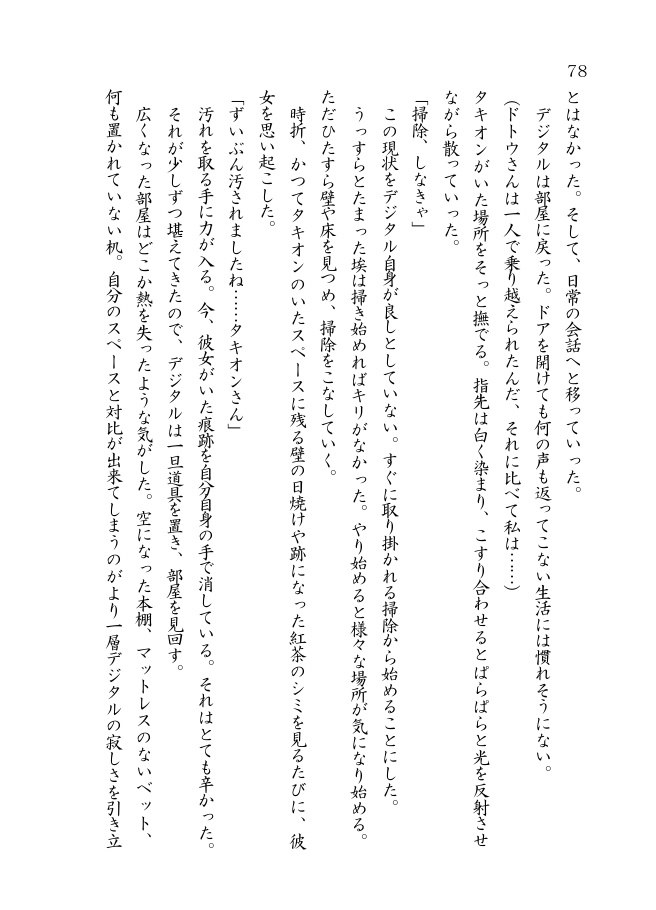 78
とはなかった。そして、日常の会話へと移っていった。
デジタルは部屋に戻った。ドアを開けても何の声も返ってこない生活には慣れそうにない。
(ドトウさんは一人で乗り越えられたんだ、それに比べて私は……)
タキオンがいた場所をそっと撫でる。指先は白く染まり、こすり合わせるとぱらぱらと光を反射させ
ながら散っていった。
「掃除、しなきゃ」
この現状をデジタル自身が良しとしていない。すぐに取り掛かれる掃除から始めることにした。
うっすらとたまった埃は掃き始めればキリがなかった。やり始めると様々な場所が気になり始める。
ただひたすら壁や床を見つめ、掃除をこなしていく。
時折、かつてタキオンのいたスペースに残る壁の日焼けや跡になった紅茶のシミを見るたびに、彼
女を思い起こした。
「ずいぶん汚されましたね……タキオンさん」
汚れを取る手に力が入る。今、彼女がいた痕跡を自分自身の手で消している。それはとても辛かった。
それが少しずつ堪えてきたので、デジタルは一旦道具を置き、部屋を見回す。
広くなった部屋はどこか熱を失ったような気がした。空になった本棚、マットレスのないベット、
何も置かれていない机。自分のスペースと対比が出来てしまうのがより一層デジタルの寂しさを引き立